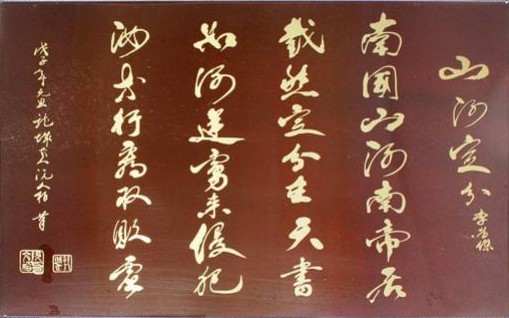 山河定分
李常傑
南國山河南帝居
截然定分在天書
如何逆虜來侵犯
汝等行看取敗虛
戊子年元旦